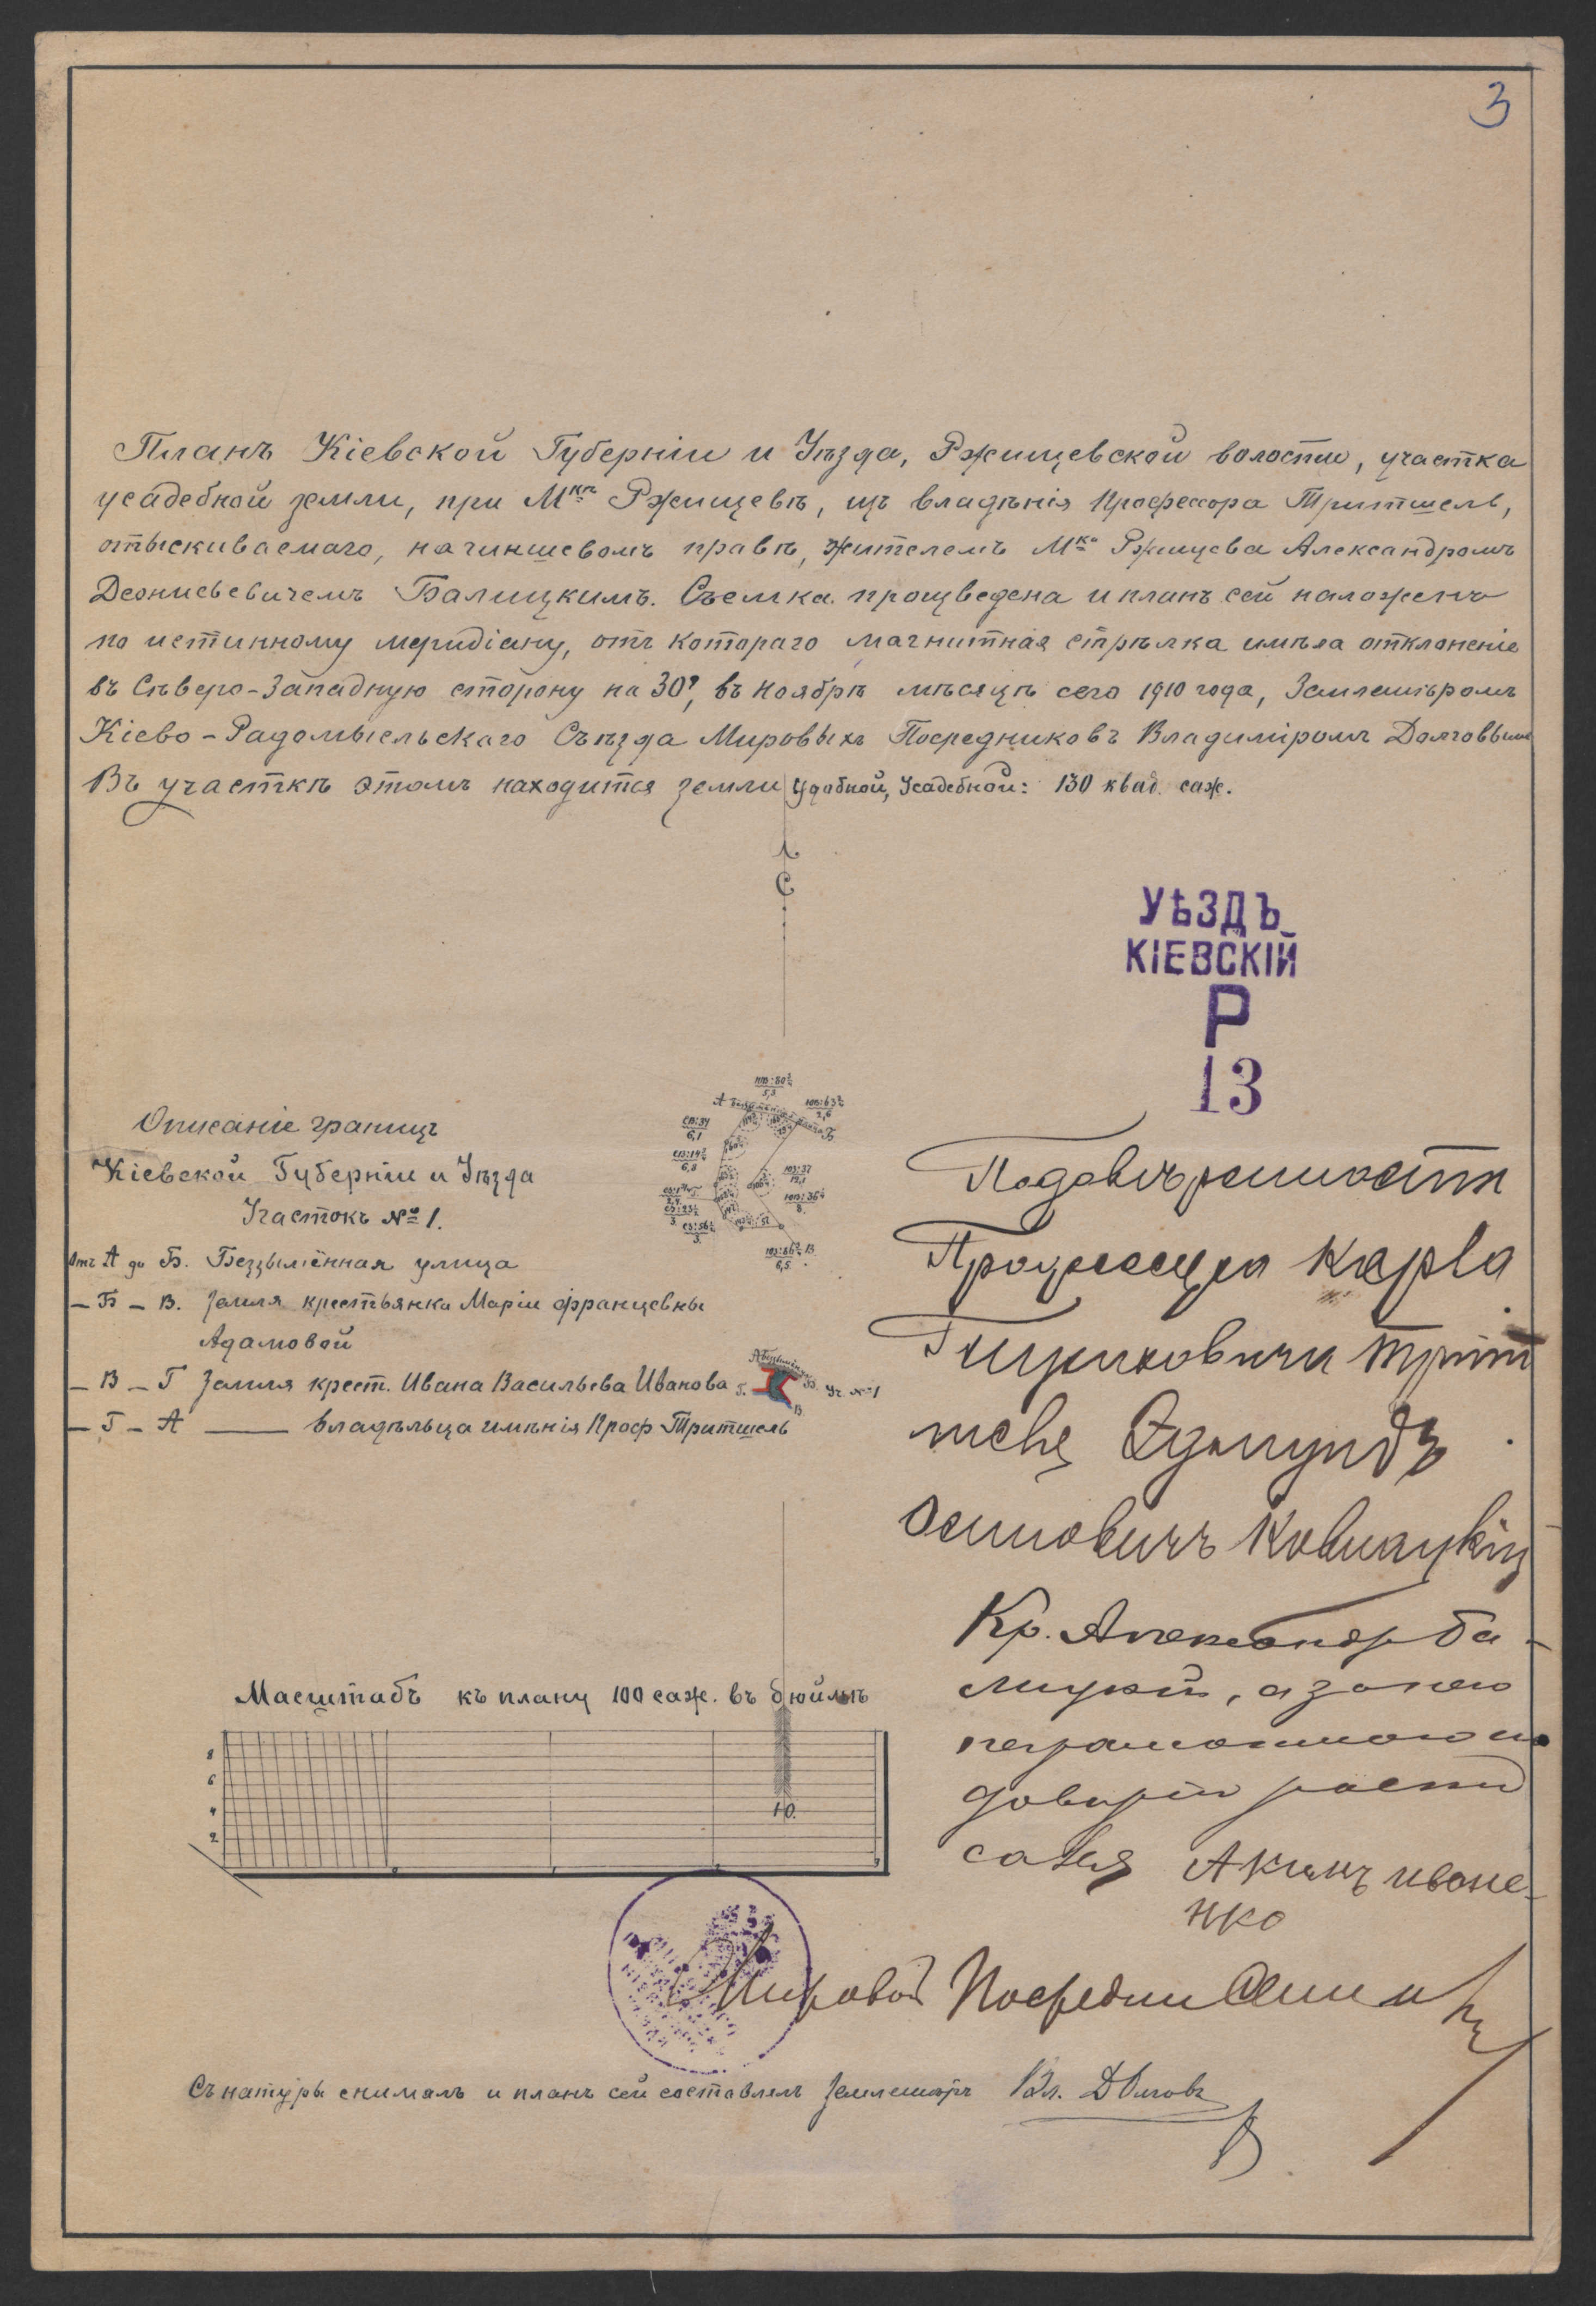 3
Планъ Кіевской Губерніи и Уѣзда, Ржищевской волости, участка
усадебной земли, при Мкѣ Ржищевѣ, изъ владѣнія Профессора Тритшель,
отыскиваемаго, на чиншевомъ правѣ, жителемъ Мка Ржищева Александромъ
Деонисьевичемъ Балицкимъ. Съемка произведена и планъ сей наложенъ
по истинному меридіану, отъ котораго магнитная стрѣлка имѣла отклоненіе
въ Сѣверо-Западную сторону на 30', въ Ноябрѣ мѣсяцѣ сего 1910 года, Землемѣромъ
Кіево-Радомысльскаго Съѣзда Мировыхъ Посредниковъ Владиміромъ Долговымъ
Въ участкѣ этомъ находится земли удобной, Усадебной: 130 квад. саж.
С
УѢЗДЪ
КІЕВСКІЙ
Р
13
Описаніе границъ
Кіевской Губерніи и Уѣзда
Участокъ № 1.
Отъ А до Б. Безъымённая улица
— Б — В. Земля крестьянки Маріи Францевны
Адамовой
— В — Г Земля крест. Ивана Васильева Иванова
— Г — А —— владѣльца имѣнія Проф Тритшель
Г.
Б.
В
Уч. № 1
По довѣренности
Професcора Карла
Генриховича Трит
шель Эдмундъ
Осиповичъ
Кр. Александр Ба-
лицкій, а за него
неграмотного по
довѣрію роспи
сался Акимъ Иване-
нко
Масштабъ къ плану 100 саж. въ дюймѣ
8
6
4
2
Ю.
Мировой Посредникъ
Съ натуры снималъ и планъ сей составлялъ Землемѣръ Вл. Долговъ